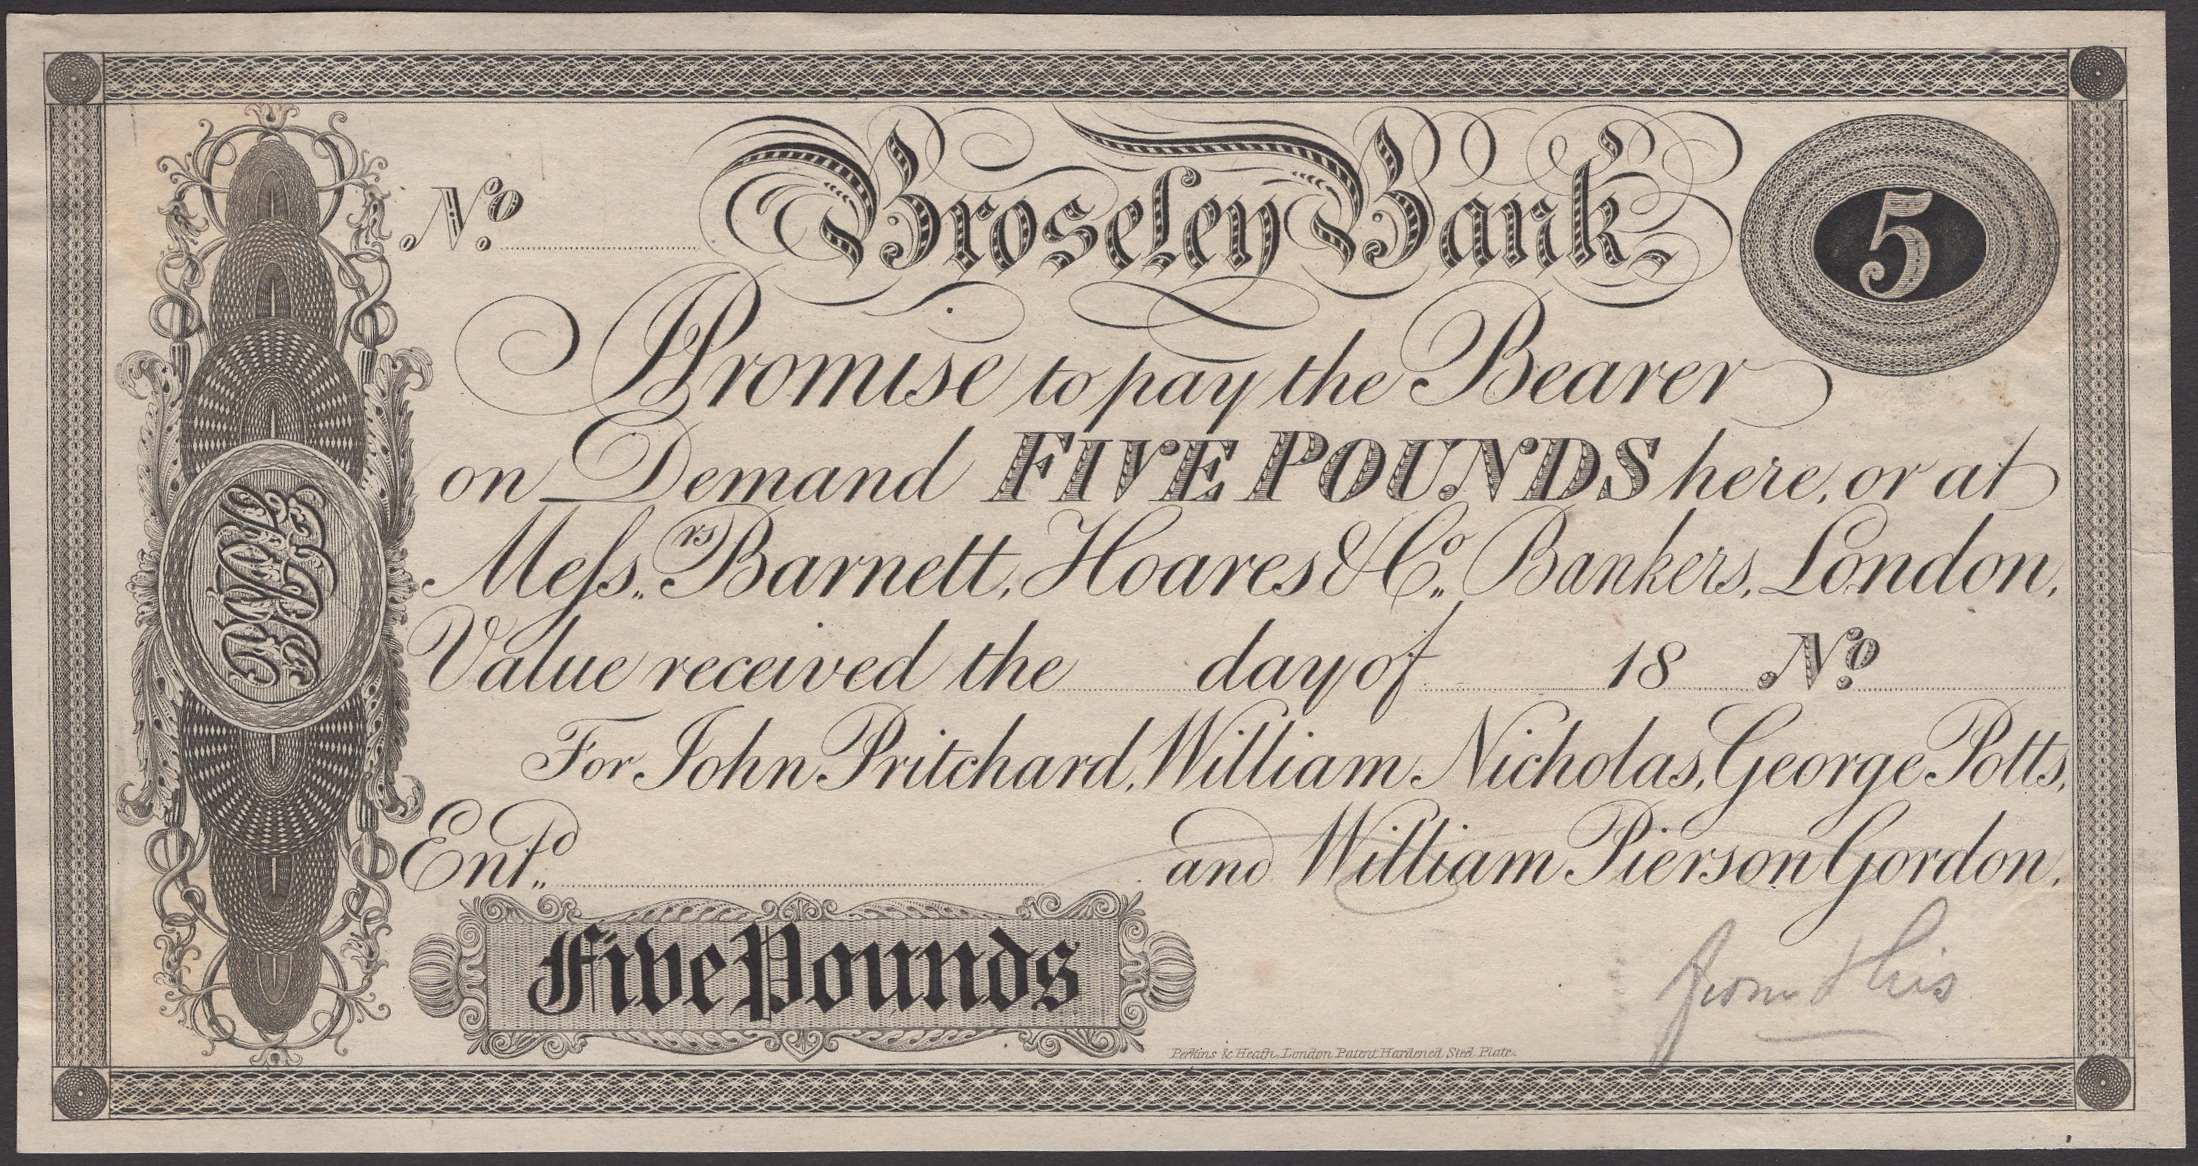 No. Broseley Bank 5
I Promise to pay the Bearer
on Demand FIVE POUNDS here, or at
Messrs. Barnett, Hoares & Co. Bankers, London,
Value received the day of 18 No.
For John Pritchard, William Nicholas, George Potts,
Entd. and William Pierson Gordon.
Five Pounds
from this
Perkins & Heath, London Patent Hardened Steel Plate.